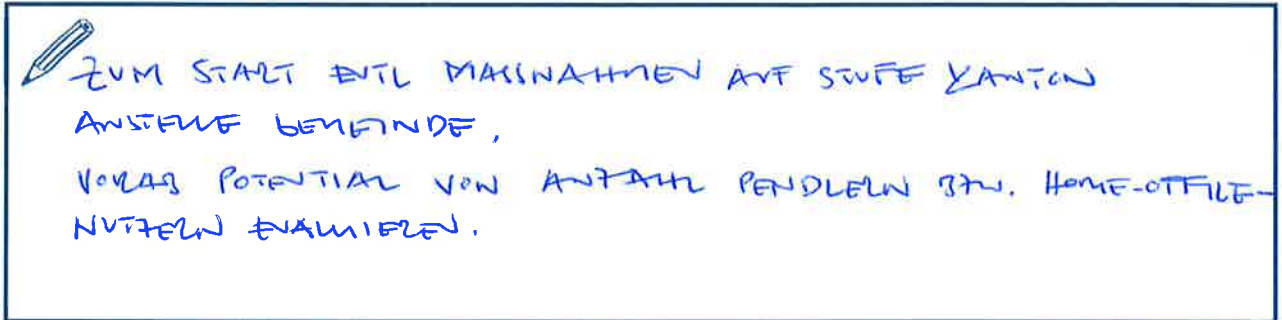 ZUM START EVTL MASSNAHMEN AUF STUFE KANTON
ANSTELLE GEMEINDE,
VORAB POTENTIAL VON ANZAHL PENDLERN BZW. HOME-OFFICE-
NUTZERN EVALUIEREN.